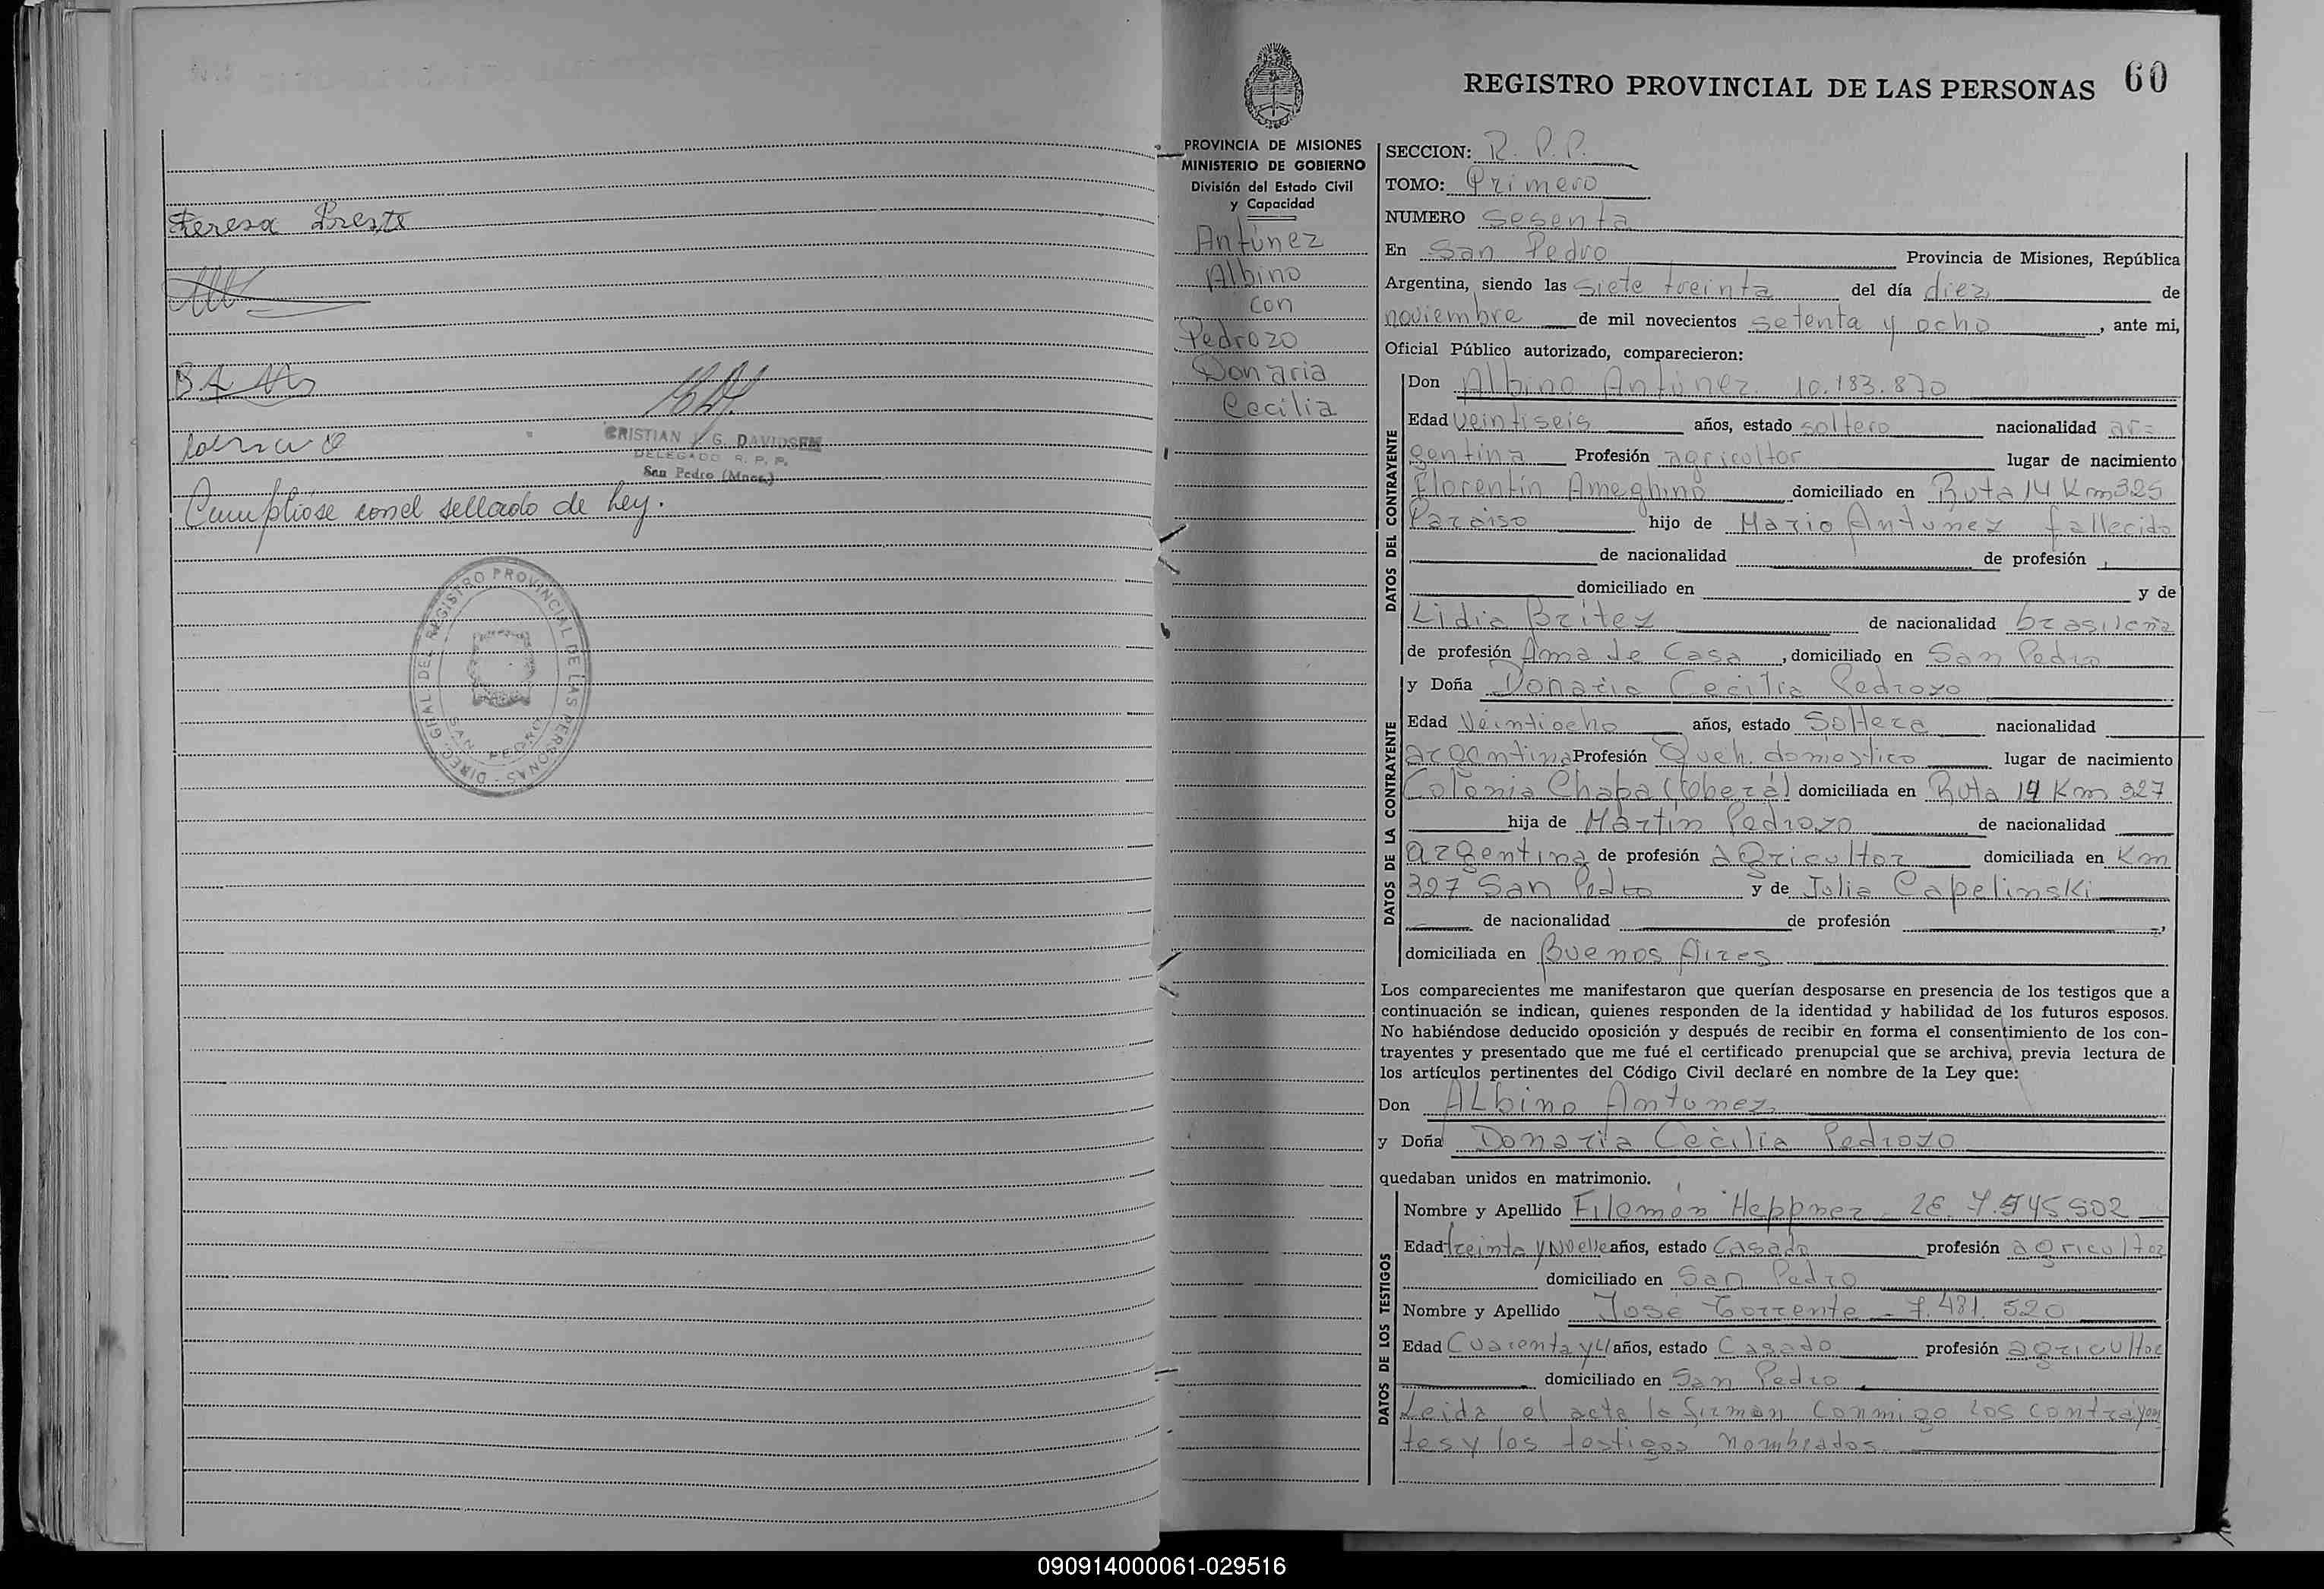 Teresa Preste
CRISTIAN J. G. DAVIDSEN
DELEGADO R. P. P.
San Pedro (Mnes.)
Cumplióse con el sellado de Ley.
DIREC. GRAL DEL REGISTRO PROVINCIAL DE LAS PERSONAS
SAN PEDRO
REGISTRO PROVINCIAL DE LAS PERSONAS 60
PROVINCIA DE MISIONES
MINISTERIO DE GOBIERNO
División del Estado Civil
y Capacidad
Antúnez
Albino
con
Pedrozo
Donaria
Cecilia
SECCION: R. P. P.
TOMO: Primero
NUMERO Sesenta
En San Pedro Provincia de Misiones, República
Argentina, siendo las siete treinta del día diez de
noviembre de mil novecientos setenta y ocho, ante mi,
Oficial Público autorizado, comparecieron:
DATOS DEL CONTRAYENTE
Don Albino Antúnez 10.183.870
Edad veintiseis años, estado soltero nacionalidad ar=
gentina Profesión agricultor lugar de nacimiento
Florentin Ameghino domiciliado en Ruta 14 Km 325
Paraiso hijo de Mario Antunez fallecido
de nacionalidad de profesión
domiciliado en y de
Lidia Britez de nacionalidad brasileña
de profesión Ama de Casa, domiciliado en San Pedro
DATOS DE LA CONTRAYENTE
y Doña Donaria Cecilia Pedrozo
Edad Veintiocho años, estado Soltera nacionalidad
argentina Profesión Queh. domestico lugar de nacimiento
Colonia Chapa (Obera) domiciliada en Ruta 14 Km 327
hija de Martin Pedrozo de nacionalidad
argentina de profesión agricultor domiciliada en Km
327 San Pedro y de Julia Capelinski
de nacionalidad de profesión ,
domiciliada en Buenos Aires
Los comparecientes me manifestaron que querían desposarse en presencia de los testigos que a
continuación se indican, quienes responden de la identidad y habilidad de los futuros esposos.
No habiéndose deducido oposición y después de recibir en forma el consentimiento de los con-
trayentes y presentado que me fué el certificado prenupcial que se archiva, previa lectura de
los artículos pertinentes del Código Civil declaré en nombre de la Ley que:
Don ALbino Antunez
y Doña Donaria Cecilia Pedrozo
quedaban unidos en matrimonio.
DATOS DE LOS TESTIGOS
Nombre y Apellido Filemón Heppner
Edad treinta y Nueve años, estado Casado profesión agricultor
domiciliado en San Pedro
Nombre y Apellido Jose Corrente - 7.481.520
Edad Cuarenta y 4 años, estado Casado profesión agricultor
domiciliado en San Pedro
Leida el acta la firman conmigo los contrayen
tes y los testigos nombrados
090914000061-029516